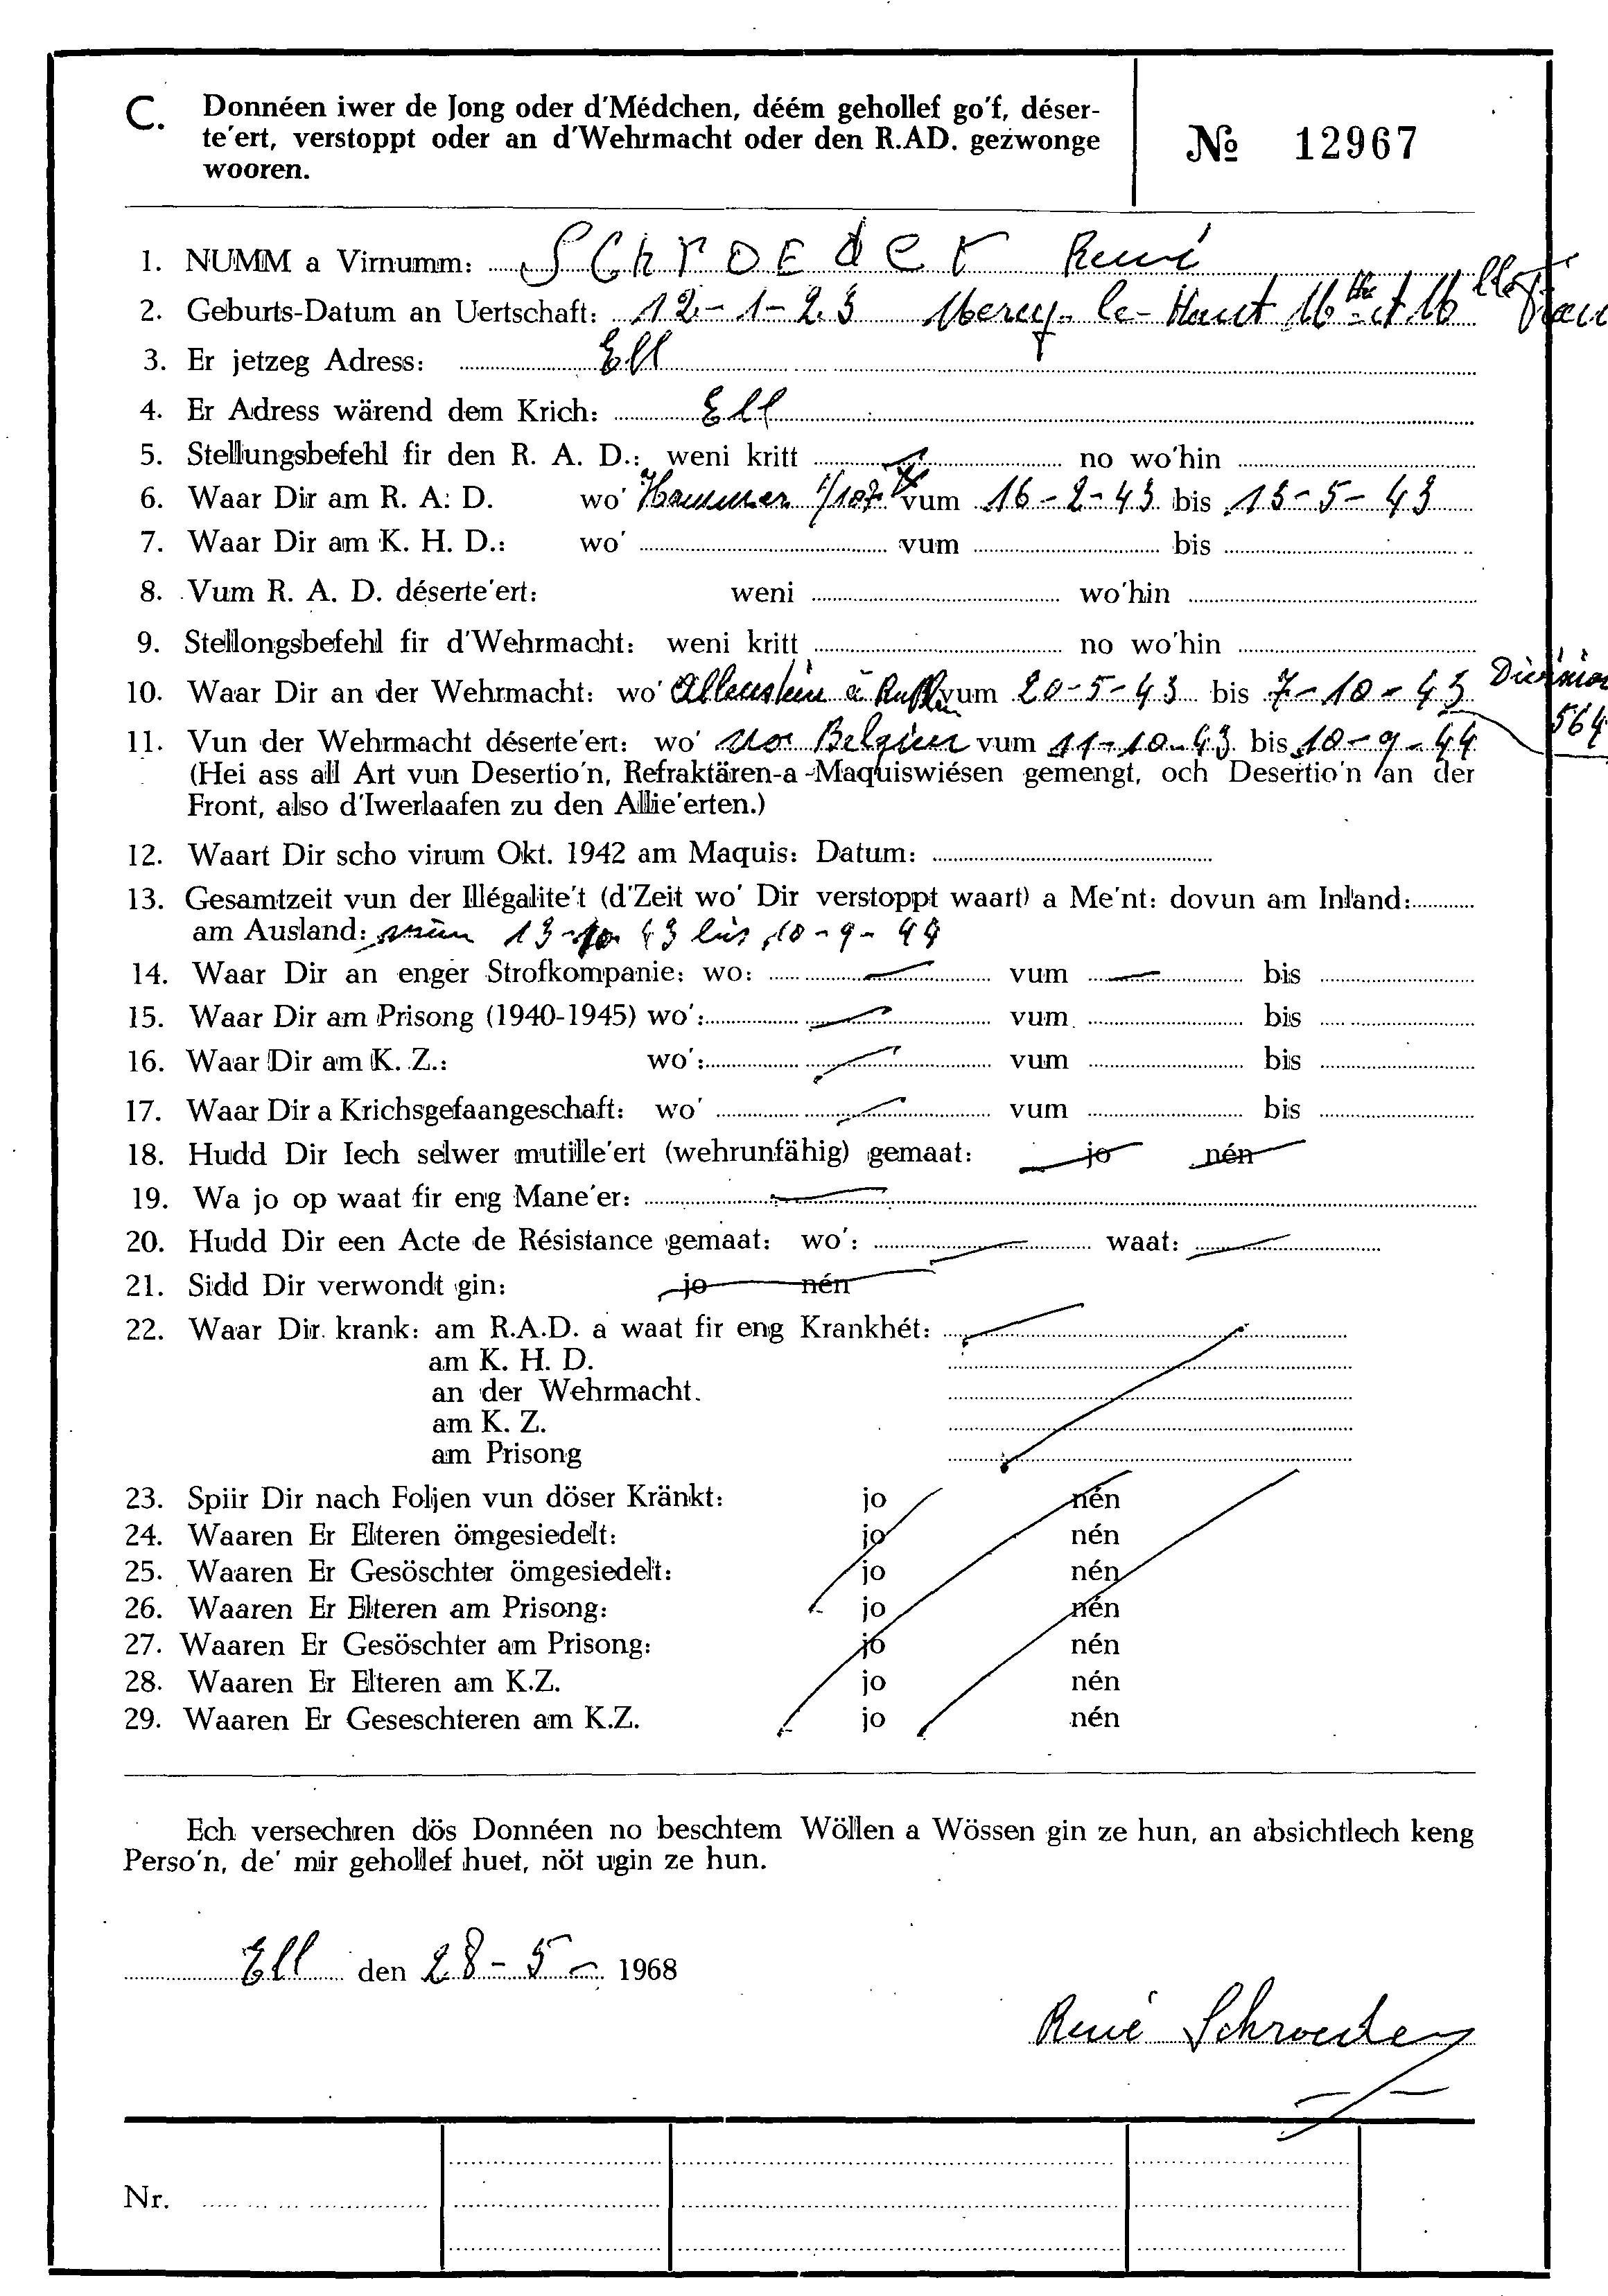 C. Donnéen iwer de Jong oder d'Médchen, déém gehollef go'f, déser-
te'ert, verstoppt oder an d'Wehrmacht oder den R.AD. gezwonge
wooren.
№ 12967
1. NUMM a Virnumm: SChroeder René
2. Geburts-Datum an Uertschaft: 12-1-23 Mercy-le-Haut
3. Er jetzeg Adress: Ell
4. Er Adress wärend dem Krich: Ell
5. Stellungsbefehl fir den R. A. D.: weni kritt no wo'hin
6. Waar Dir am R. A. D. wo' Hammer vum 16-2-43 bis 13-5-43
7. Waar Dir am K. H. D.: wo' vum bis
8. Vum R. A. D. déserte'ert: weni wo'hin
9. Stellongsbefehl fir d'Wehrmacht: weni kritt no wo'hin
10. Waar Dir an der Wehrmacht: wo' Allenstein a vum 20-5-43 bis 7-10-43 Division
564
11. Vun der Wehrmacht déserte'ert: wo' no Belgien vum 11-10-43 bis 10-9-44
(Hei ass all Art vun Desertio'n, Refraktären-a-Maquiswiésen gemengt, och Desertio'n an der
Front, also d'Iwerlaafen zu den Allie'erten.)
12. Waart Dir scho virum Okt. 1942 am Maquis: Datum:
13. Gesamtzeit vun der Illégalite't (d'Zeit wo' Dir verstoppt waart) a Me'nt: dovun am Inland:
am Ausland: 13-10 43 bis 10-9-44
14. Waar Dir an enger Strofkompanie: wo: vum bis
15. Waar Dir am Prisong (1940-1945) wo': vum bis
16. Waar Dir am K. Z.: wo': vum bis
17. Waar Dir a Krichsgefaangeschaft: wo' vum bis
18. Hudd Dir Iech selwer mutille'ert (wehrunfähig) gemaat: jo nén
19. Wa jo op waat fir eng Mane'er:
20. Hudd Dir een Acte de Résistance gemaat: wo': waat:
21. Sidd Dir verwondt gin: jo nén
22. Waar Dir krank: am R.A.D. a waat fir eng Krankhét:
am K. H. D.
an der Wehrmacht.
am K. Z.
am Prisong
23. Spiir Dir nach Foljen vun döser Kränkt: jo nén
24. Waaren Er Elteren ömgesiedelt: jo nén
25. Waaren Er Gesöschter ömgesiedelt: jo nén
26. Waaren Er Elteren am Prisong: jo nén
27. Waaren Er Gesöschter am Prisong: jo nén
28. Waaren Er Elteren am K.Z. jo nén
29. Waaren Er Geseschteren am K.Z. jo nén
Ech versechren dös Donnéen no beschtem Wöllen a Wössen gin ze hun, an absichtlech keng
Perso'n, de' mir gehollef huet, nöt ugin ze hun.
Ell den 28-5- 1968
René Schroeder
Nr.